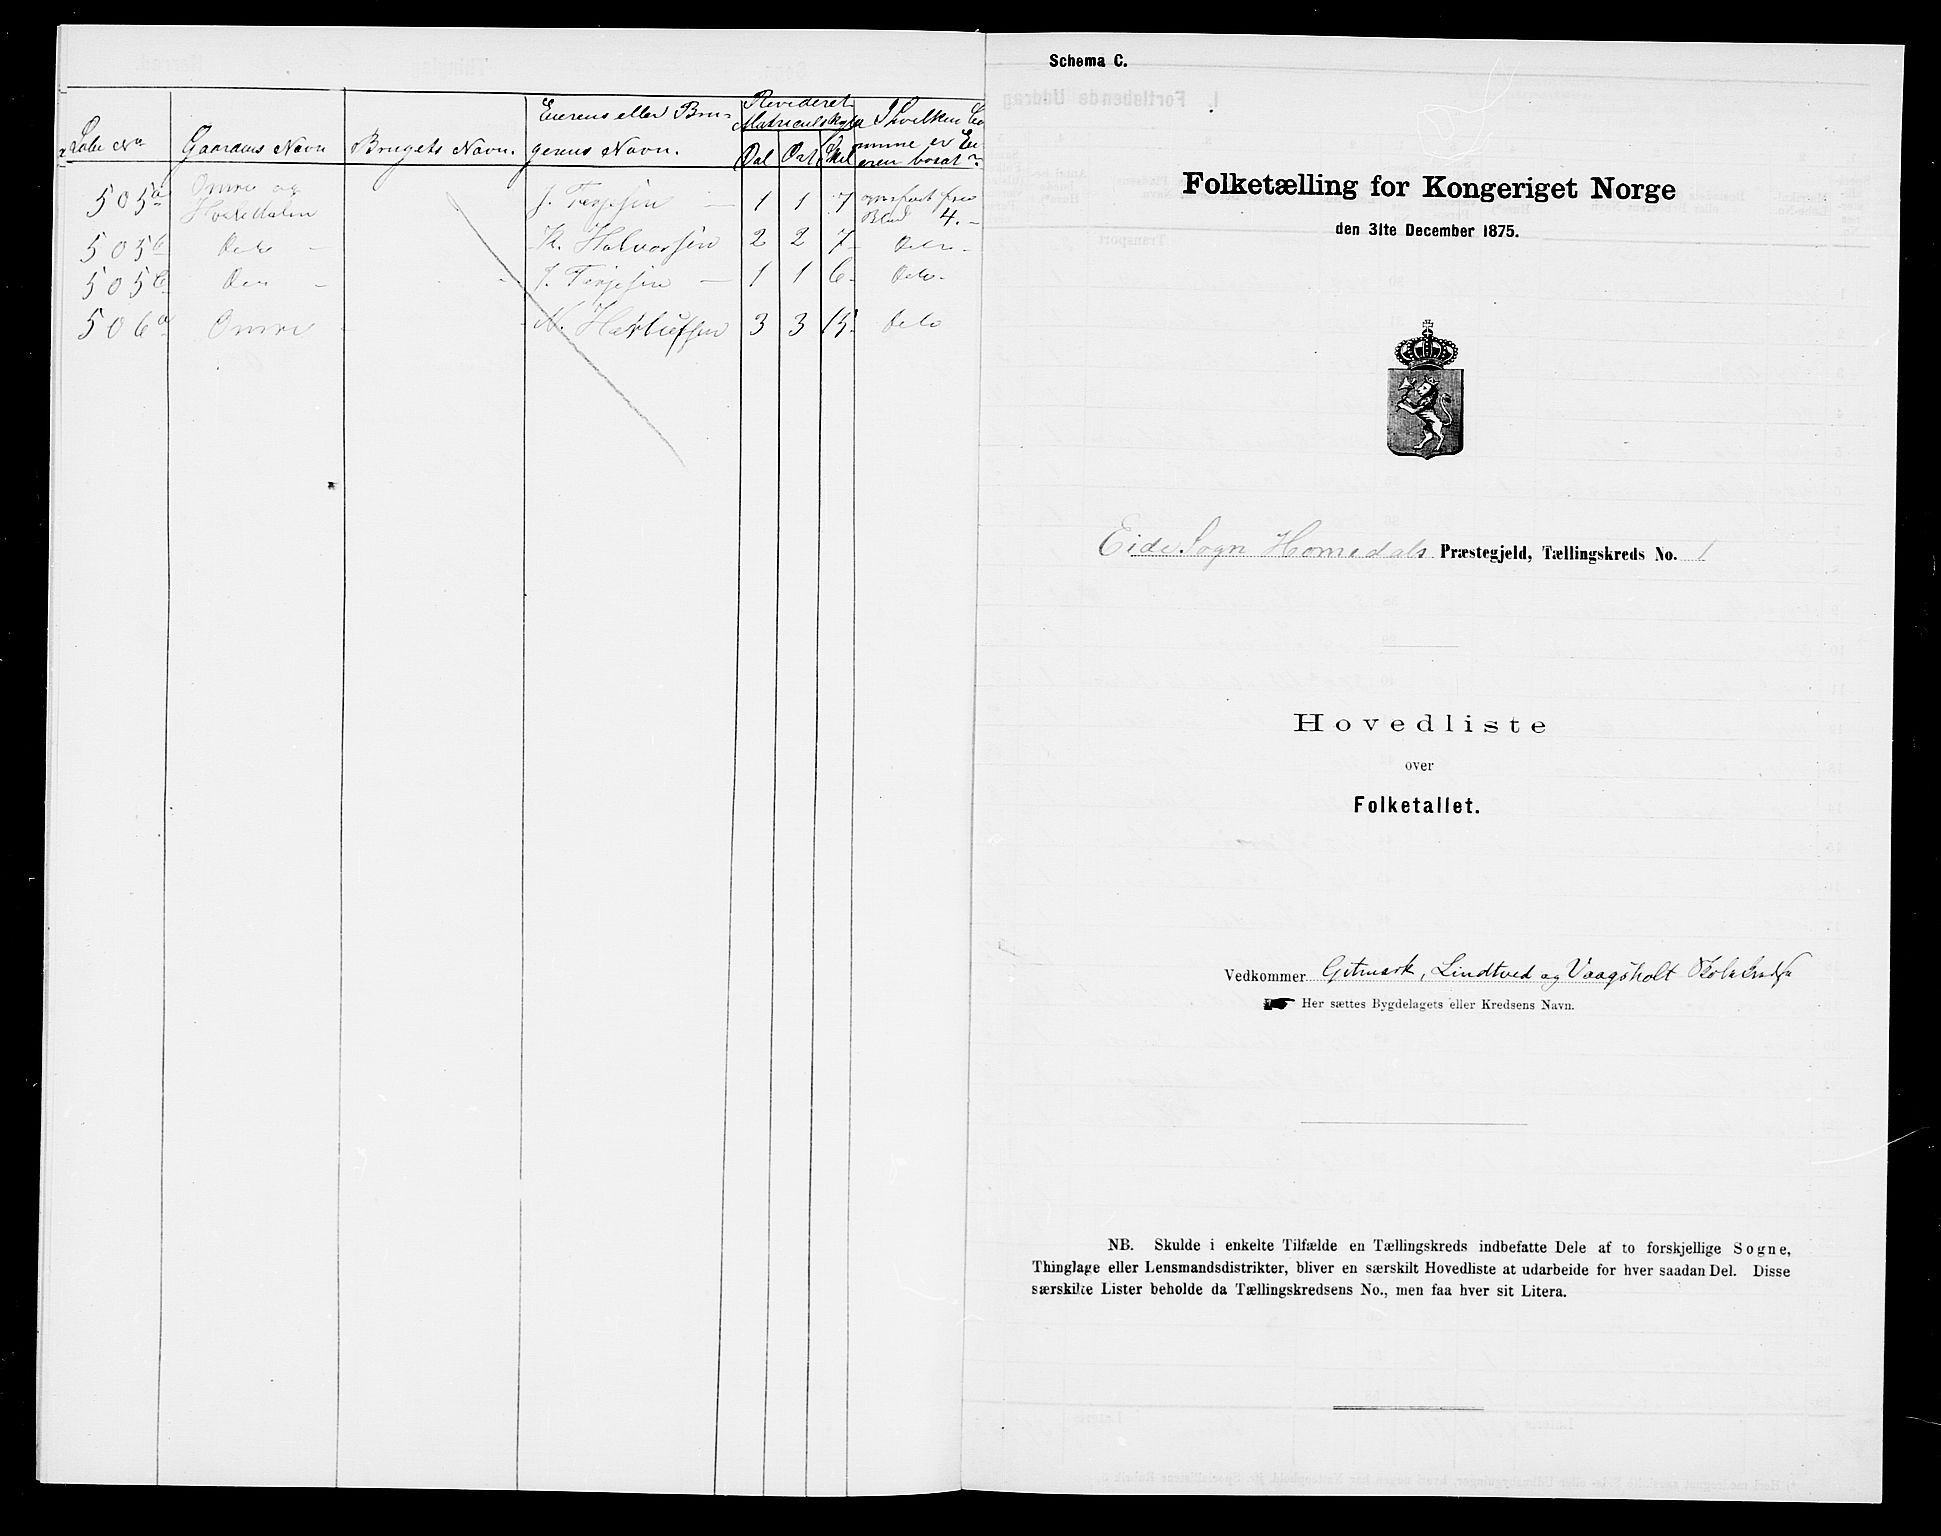 Løbe No
Gaardens Navn
Brugets Navn.
Eierens eller Bru-
gerens Navn.
Revideret
Matriculskyld
Dal Ort Skil
I hvilken Co
mmune er Ei
eren bosat?
505a Omre og Hoveddalen J. Terjesen — 1 1 7 4. —
505b Dito — K. Halvorsen 2 2 7 Dito -
505c J. Terjesen — 1 1 6 Dito -
506a Omre N. 3 3 15 Dito
Schema C.
Folketælling for Kongeriget Norge
den 31te December 1875.
Eide Sogn Homedals Præstegjeld, Tællingskreds No. 1
Hovedliste
over
Folketallet.
Vedkommer Gitmark, Lindtved og Vaagsholt
Her sættes Bygdelagets eller Kredsens Navn.
NB. Skulde i enkelte Tilfælde en Tællingskreds indbefatte Dele af to forskjellige Sogne,
Thinglage eller Lensmandsdistrikter, bliver en særskilt Hovedliste at udarbeide for hver saadan Del. Disse
særskilte Lister beholde da Tællingskredsens No., men faa hver sit Litera.